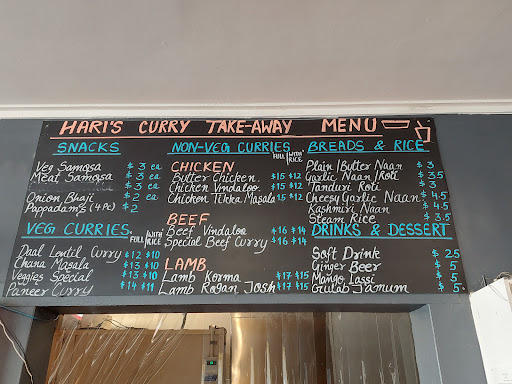 HARI'S CURRY TAKE-AWAY MENU
SNACKS
Veg Samosa $ 3 ea
Meat Samosa $ 3 ea
Onion Bhaji $ 2 ea
Pappadams (4 Pc) $ 2
VEG CURRIES FULL WITH RICE
Daal Lentil Curry $12 $10
Chana Masala $13 $10
Veggies Special $13 $10
Paneer Curry $14 $11
NON-VEG CURRIES FULL WITH RICE
CHICKEN
Butter Chicken $15 $12
Chicken Vindaloo $15 $12
Chicken Tikka Masala $15 $12
BEEF
Beef Vindaloo $16 $14
Special Beef Curry $16 $14
LAMB
Lamb Korma $17 $15
Lamb Rogan Josh $17 $15
BREADS & RICE
Plain | Butter Naan $ 3
Garlic Naan | Roti $ 3.5
Tanduri Roti $ 3
Cheesy Garlic Naan $ 4.5
Kashmiri Naan $ 4.5
Steam Rice $ 3.5
DRINKS & DESSERT
Soft Drink $ 2.5
Ginger Beer $ 5
Mango Lassi $ 5
Gulab Jamum $ 5